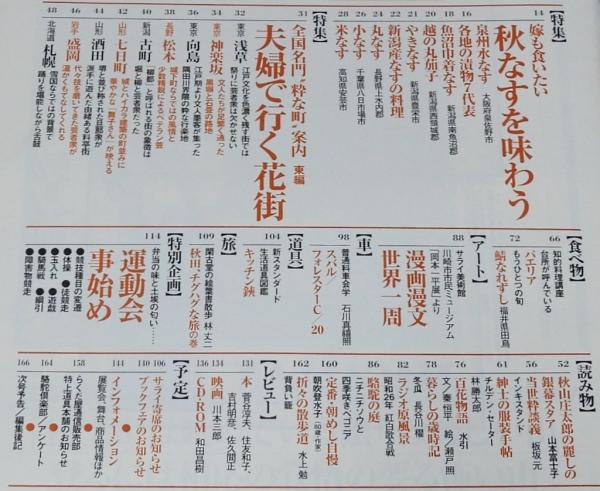 【特集】
14
嫁も食いたい
秋なすを味わう
16
泉州水なす 大阪府泉佐野市
各地の漬物7代表
18
魚沼巾着なす 新潟県南魚沼郡
20
越の丸茄子 新潟県西頸城郡
21
やきなす 新潟県豊栄市
22
新潟産なすの料理
24
丸なす 長野県上水内郡
26
小なす 千葉県八日市場市
28
米なす 高知県安芸市
【特集】
31
全国名門「粋な町」案内 東編
夫婦で行く花街
32
東京 浅草 江戸文化を色濃く残す街では
祭りに芸者は欠かせない
34
東京 神楽坂 文人たちが足繁く通った
黒塀と石畳の路地
36
東京 向島 江戸期、文人墨客が集った
隅田川界隈の粋な行楽地
38
長野 松本 城下町ならではの風情と
少数精鋭によるベテラン芸
40
新潟 古町 「柳都」と呼ばれる街の象徴は
堀と柳と芸者だった
42
山形 七日町 城とハイカラ建築の町並みに
華やかな「舞子さん」が映える
44
山形 酒田 堺と並び称された旦那衆が
派手に遊んだ由緒ある料亭街
46
岩手 盛岡 代々技を磨いてきた芸者衆が
温かくもてなしてくれる
48
北海道 札幌 雪国ならではの背景で
踊りを堪能しながら舌鼓
【食べ物】
66
知的料理講座
台所が呼んでいる
パエリア
72
もうひとつの旬
鯖なれずし 福井県田烏
【アート】
88
サライ美術館
川崎市市民ミュージアム
「岡本一平展」より
漫画漫文
世界一周
【車】
98
普通料車会学 石川真禧照
スバル/
フォレスターC/20
【道具】
104
新スタンダード
生活道具図鑑
キッチン鋏
【旅】
109
閑古堂の絵葉書散歩 林 丈二
秋田・チグハグな旅の巻
【特別企画】
114
弁当の味と土埃の匂い……
運動会
事始め
●競技種目の変遷
●体操 ●徒競走
●玉入れ ●遊戯
●騎馬戦 ●綱引
●障害物競走
【読み物】
52
秋山庄太郎の麗しの
銀幕スタア 山本富士子
56
当世粋業義 板坂 元
61
インキスタンド
紳士の服装手帖
チルデン・セーター
林 勝太郎
76
百花物語 水引
文/秦 恒平 絵/瀬戸 照
78
暮らしの歳時記
冬瓜 長谷川 櫂
82
ラジオ原風景
昭和26年 紅白歌合戦
86
駱駝の庭
ニチニチソウと
四季咲きベゴニア
160
定番・朝めし自慢
朝吹登水子(80歳・作家)
162
折々の散歩道 水上 勉
背負い籠
【レビュー】
131
本 菅谷淳夫、住友和子、
吉村明彦、佐久間正
134
映画 川本三郎
136
CD-ROM 和田昌樹
【予定】
106
サライ寄席のお知らせ
140
ブックフェアのお知らせ
144
インフォメーション
展覧会、舞台、商品情報ほか
158
らくだ屋通信販売部
特上道具本舗のお知らせ
164
駱駝倶楽部/アンケート
166
次号予告/編集後記